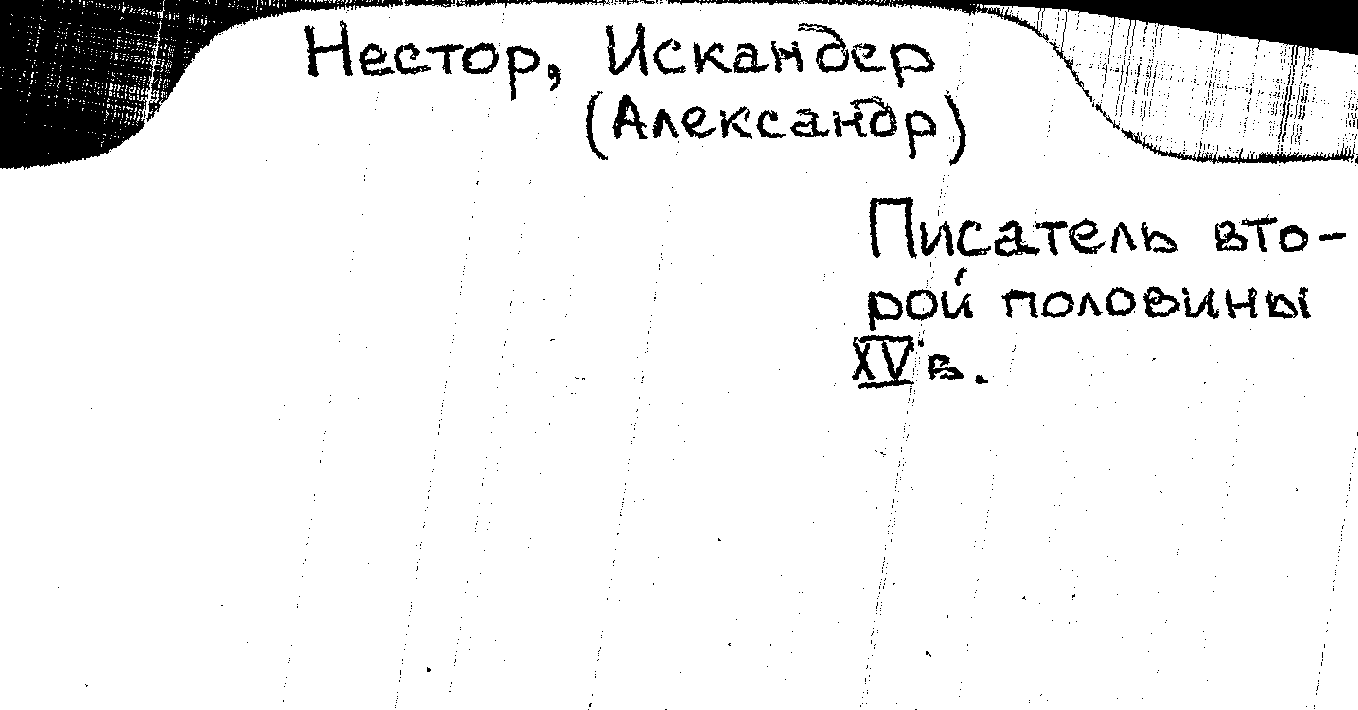 Нестор, Искандер
(Александр)
Писатель вто-
рой половины
XV в.